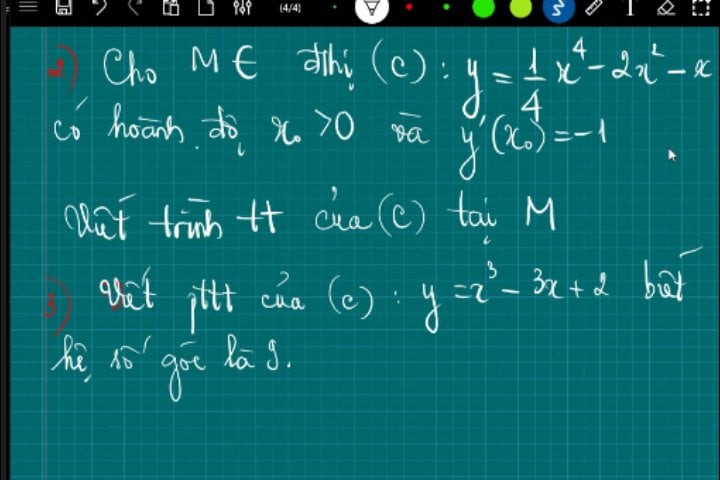 (4/4)
2) Cho M ∈ đthị (C) : y = 1/4 x⁴ - 2x² - x
có hoành độ x₀ > 0 và y'(x₀) = -1
Viết trình tt của (C) tại M
3) Viết pttt của (C) : y = x³ - 3x + 2 biết
hệ số góc là 9.